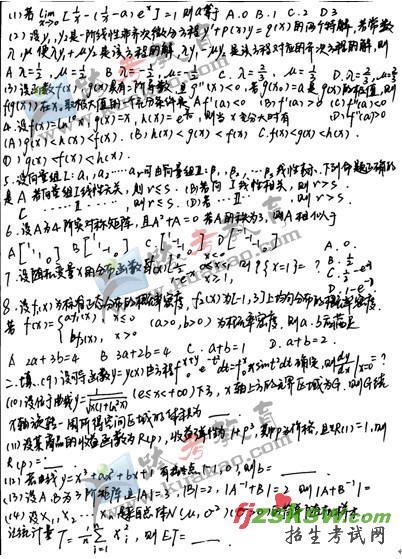 (1)若 lim x→0 [1/x-(1/x-a)e^x]=1 则a等于 A.0 B.1 C.2 D3
(2)设y₁,y₂是一阶线性非齐次微分方程y'+p(x)y=q(x)的两个特解,若常数
λ,μ使λy₁+μy₂是该方程的解,λy₁-μy₂是该方程对应的齐次方程的解,则
A λ=1/2, μ=1/2 B λ=-1/2, μ=-1/2 C. λ=2/3, μ=1/3 D. λ=2/3, μ=2/3
(3)设函数f(x),g(x)具有二阶导数,且g''(x)<0,若g(x₀)=a是g(x)的极值,则
f(g(x))在x₀取极大值的一个充分条件是 A f'(a)<0 (B) f'(a)>0 (C) f''(a)<0
(D) f''(a)>0
4.设f(x)=ln^10 x, g(x)=x, h(x)=e^(x/10), 则当x充分大时有
(A) g(x)<h(x)<f(x). (B) h(x)<g(x)<f(x) C. f(x)<g(x)<h(x).
(D) g(x)<f(x)<h(x).
5.设向量组I: α₁,α₂…αᵣ可由向量组II: β₁,β₂…βₛ线性表示,下列命题正确的
是 A 若向量组I线性无关,则r≤s. (B)若向 I线性相关,则r>s.
C … II …, 则r≤s. (D)若… II …, 则r>s.
6.设A为4阶实对称矩阵,且A²+A=0 若A的秩为3,则A相似于
A [1 1 1 0] B [1 1 -1 0] C. [1 -1 -1 0] D [-1 -1 -1 0]
7.设随机变量X的分布函数 F(x) 0≤x<1 x≥1, 则P{X=1}=? A. 0. B. 1/2 C. 1/2-e⁻¹ D. 1-e⁻¹
8.设f₁(x)为标准正态分布的概率密度, f₂(x)为[-1,3]上均匀分布的概率密度.
若 f(x)= { af₁(x), x≤0 bf₂(x), x>0 (a>0,b>0)为概率密度,则a.b应满足
A 2a+3b=4 B 3a+2b=4 C. a+b=1 D. a+b=2.
二.填. (9)设可导函数y=y(x)由方程∫₀^(x+y) e^(-t²)dt=∫₀^x x sint²dt确定,则dy/dx|x=0=?
(10)设位于曲线y=1/√(x(1+ln²x)) (e≤x<+∞)下方,x轴上方的无界区域为G,则G绕
x轴旋转一周所得空间区域的体积为 ___.
(11)设某商品的收益函数为R(p),收益弹性为1+p³,其中p为价格,且R(1)=1,则
R(p)=___.
(12)若曲线y=x³+ax²+bx+1有拐点(-1,0),则b=___
(13)设A,B为3阶矩阵,且|A|=3,|B|=2,|A⁻¹+B|=2 则|A+B⁻¹|=
(14)设X₁,X₂…Xₙ是来自总体N(μ,σ²)(σ>0)的简单随机样本
记统计量T=1/n Σ i=1 n Xᵢ², 则ET=___.
跃考教育
招生考试网
fjzsksw.com